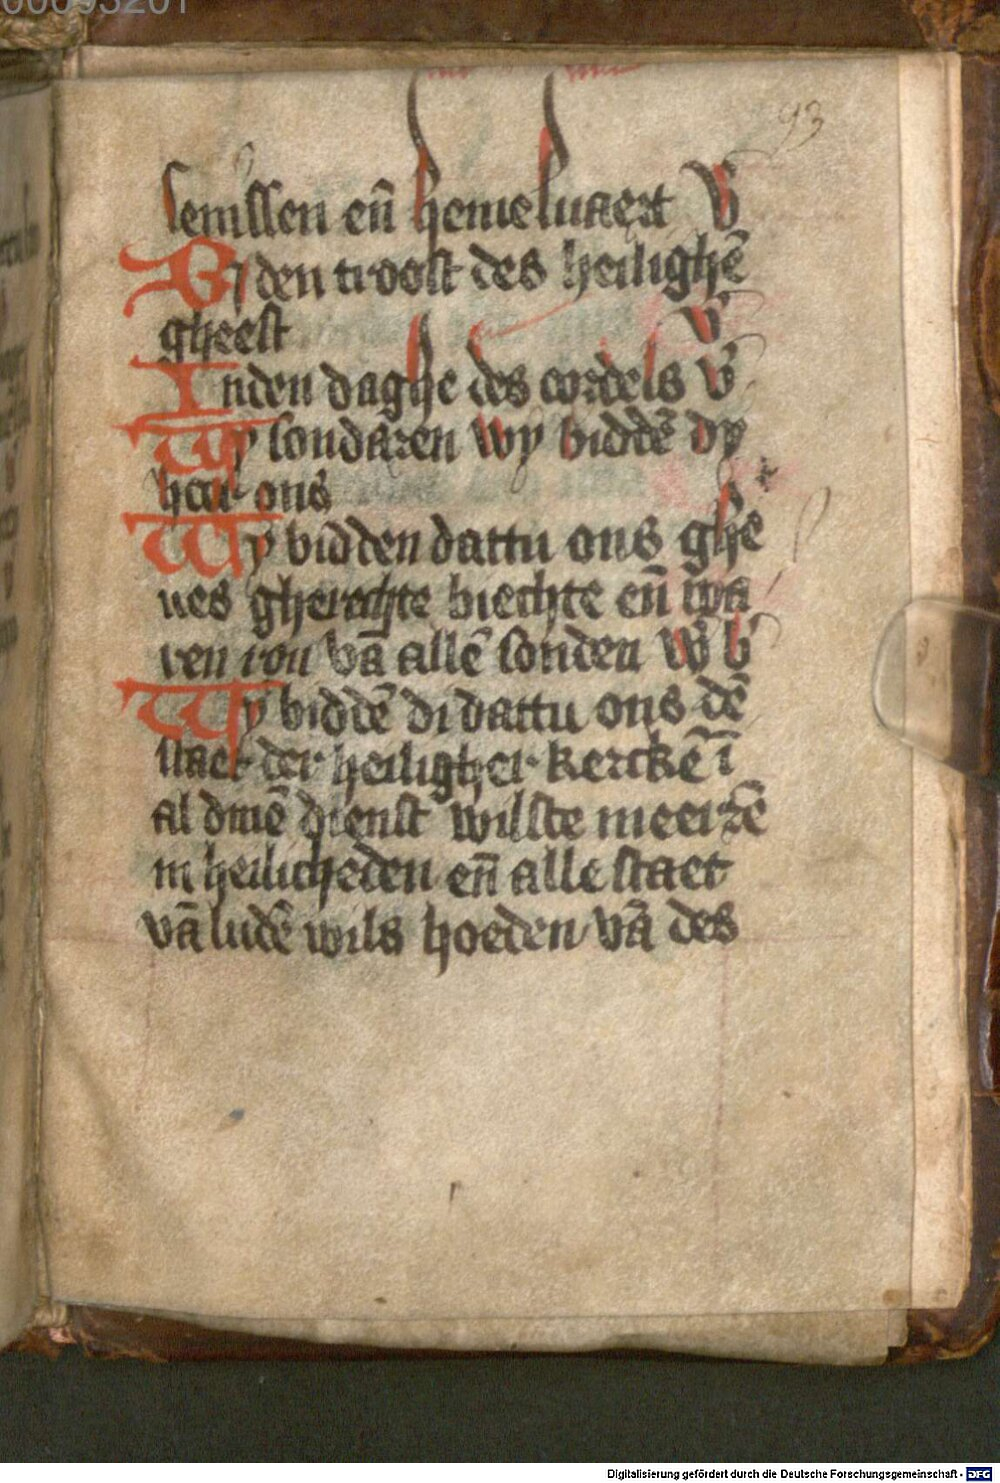 00093201
93
senissen en̄ hemeluaert v̄
By den troost des heilighē
gheest v̄
Inden daghe des ordels v̄
Wy sondaren wy biddē dy
hoer ons
Wy bidden dattu ons ghe
ues gherechte biechte en̄ wa
ren rou vā allē sonden w b
Wy biddē di dattu ons dē
staet der heiligher kerckē ī
al dinē dienst wilste meerrē
in heilicheden en̄ alle staet
vā ludē wils hoeden vā des
Digitalisierung gefördert durch die Deutsche Forschungsgemeinschaft - DFG